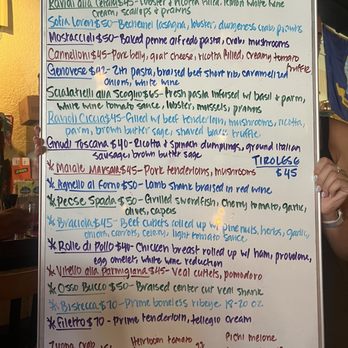 Ravioli alla Cetara $45- lobster & ricotta filled, lemon white wine
cream, scallops & prawns
Sofia Loren $50- Bechemel lasagna, lobster, dungeness crab, prawns
Mostaccioli $50- Baked penne alfredo pasta, crab, mushrooms
Cannelloni $45- Pork belly, goat cheese, ricotta filled, creamy tomato
truffle
Genovese $42- Ziti pasta, braised beef short rib, caramelized
onions, white wine
Scialatielli alla Scoglio $65- Fresh pasta infused w/ basil & parm,
white wine tomato sauce, lobster, mussels, prawns
Ravioli Ciccia $45- filled w/ beef tenderloin, mushrooms, ricotta,
parm, brown butter sage, shaved black truffle
Gnudi Toscana $40- Ricotta & Spinach dumplings, ground italian
sausage, brown butter sage
TIROLESE
$45
* Maiale Marsala $45- Pork tenderloins, mushrooms
* Agnello al Forno $50- Lamb Shank braised in red wine
* Pesce Spada $50- Grilled swordfish, cherry tomato, garlic,
olives, capers
* Braciola $45- Beef cutlets rolled up w/ pine nuts, herbs, garlic,
onions, carrots, celery, light tomato sauce
* Rolle di Pollo $40- Chicken breast rolled up w/ ham, provolone,
egg omelet, white wine reduction
* Vitello alla Parmigiana $45- Veal cutlets, pomodoro
* Osso Bucco $50- Braised center cut veal shank
* Bistecca $70- Prime boneless ribeye 18-20 oz
* Filetto $70- Prime tenderloin, tellegio cream
Heirloom tomato
Pichi melone